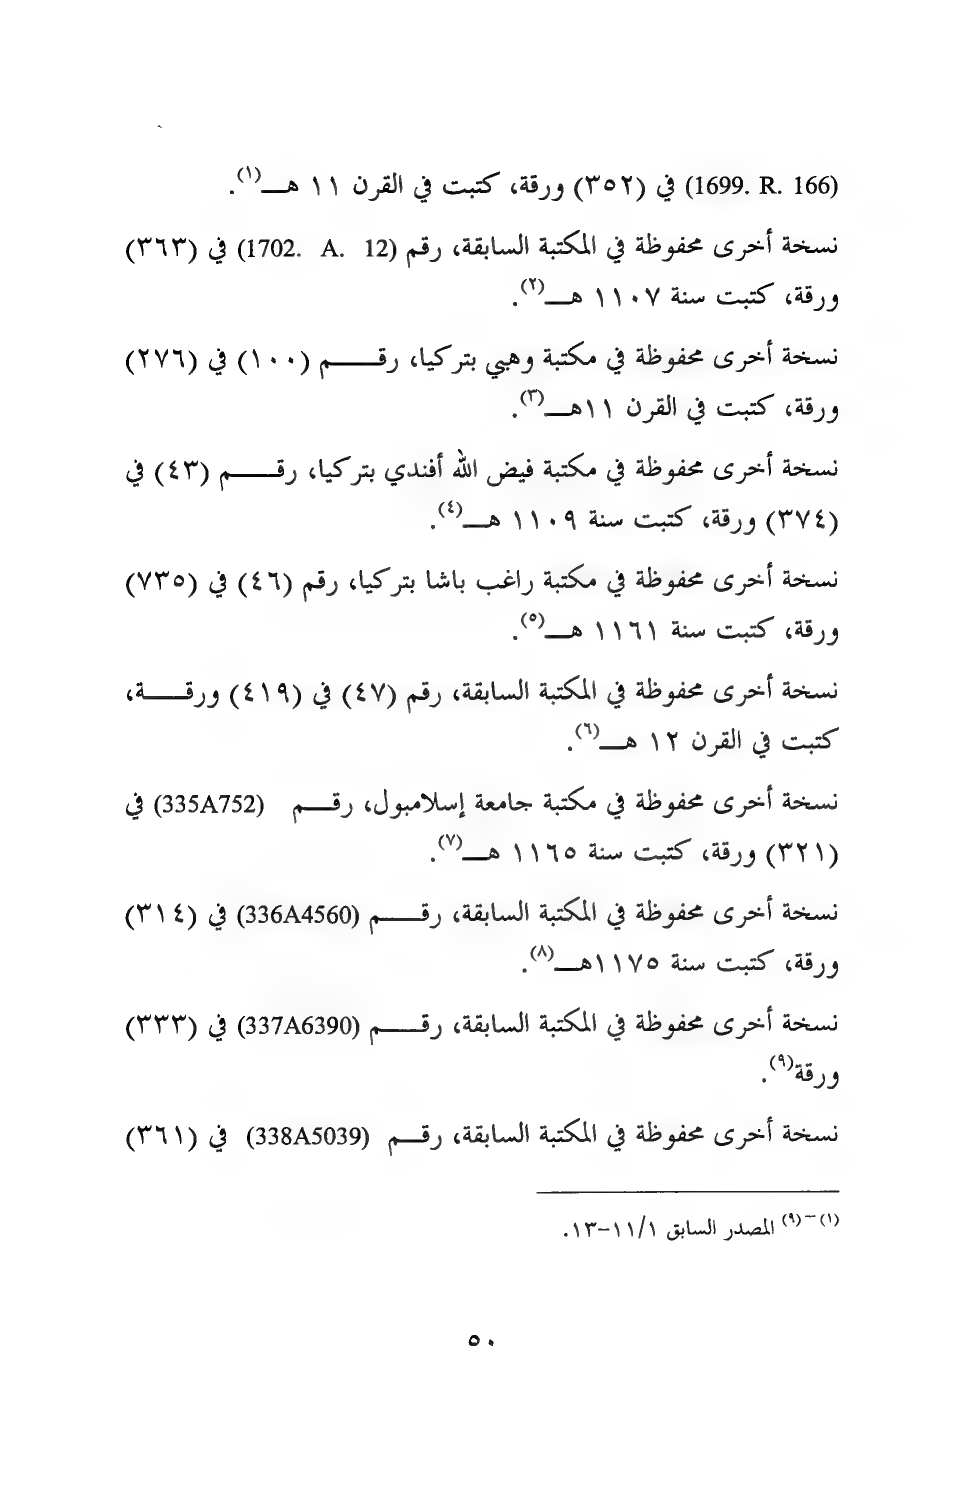 (1699. R. 166) في (٣٥٢) ورقة، كتبت في القرن ١١ هـــ(١).
نسخة أخرى محفوظة في المكتبة السابقة، رقم (1702. A. 12) في (٣٦٣)
ورقة، كتبت سنة ١١٠٧ هـــ(٢).
نسخة أخرى محفوظة في مكتبة وهبي بتركيا، رقـــــم (١٠٠) في (٢٧٦)
ورقة، كتبت في القرن ١١هـــ(٣).
نسخة أخرى محفوظة في مكتبة فيض الله أفندي بتركيا، رقـــــم (٤٣) في
(٣٧٤) ورقة، كتبت سنة ١١٠٩ هـــ(٤).
نسخة أخرى محفوظة في مكتبة راغب باشا بتركيا، رقم (٤٦) في (٧٣٥)
ورقة، كتبت سنة ١١٦١ هـــ(٥).
نسخة أخرى محفوظة في المكتبة السابقة، رقم (٤٧) في (٤١٩) ورقـــــة،
كتبت في القرن ١٢ هـــ(٦).
نسخة أخرى محفوظة في مكتبة جامعة إسلامبول، رقـــم (335A752) في
(٣٢١) ورقة، كتبت سنة ١١٦٥ هـــ(٧).
نسخة أخرى محفوظة في المكتبة السابقة، رقـــــم (336A4560) في (٣١٤)
ورقة، كتبت سنة ١١٧٥هـــ(٨).
نسخة أخرى محفوظة في المكتبة السابقة، رقـــــم (337A6390) في (٣٣٣)
ورقة(٩).
نسخة أخرى محفوظة في المكتبة السابقة، رقـــم (338A5039) في (٣٦١)
(١)–(٩) المصدر السابق ١/ ١١-١٣.
٥٠